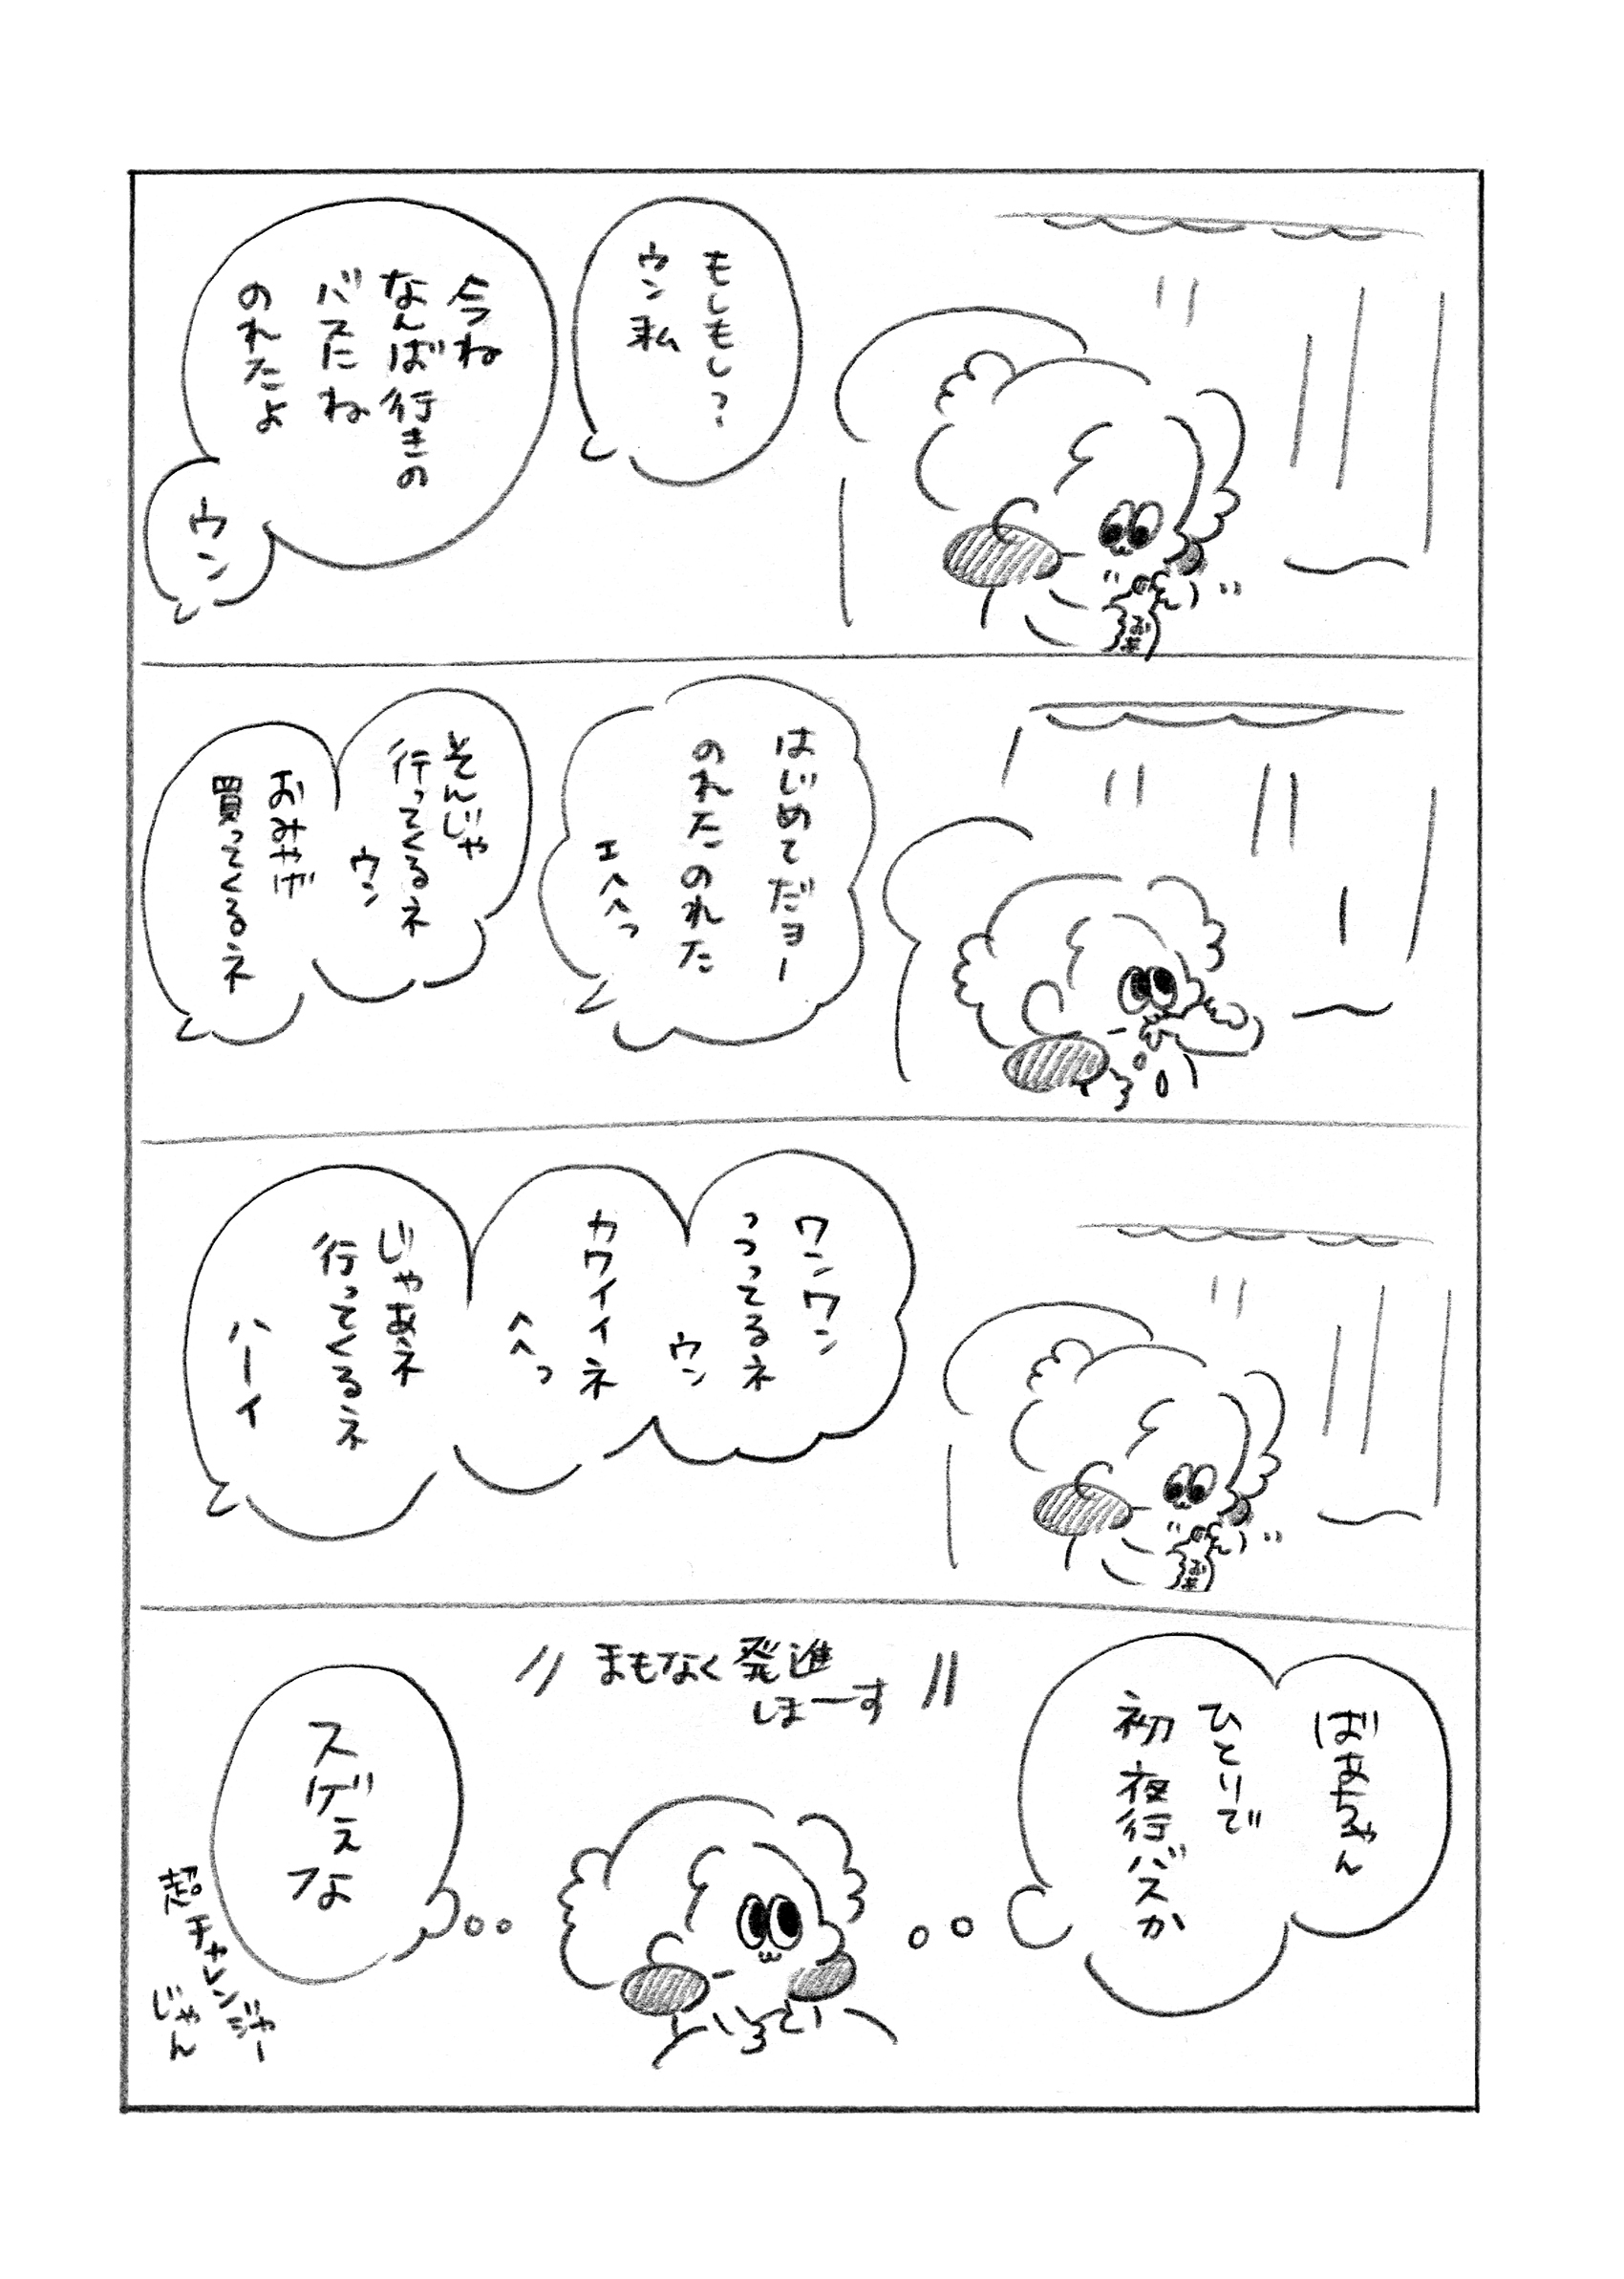 もしもしっ?
ウン私
今ね
なんば行きの
バスにね
のれたよ
ウン
はじめてだヨー
のれたのれた
エヘヘっ
そんじゃ
行ってくるネ
ウン
おみやげ
買ってくるネ
ワンワン
っつってるネ
ウン
カワイイネ
ヘヘっ
じゃあネ
行ってくるネ
ハーイ
ばあちゃん
ひとりで
初夜行バスか
まもなく発進
しまーす
スゲぇな
超チャレンジャー
じゃん